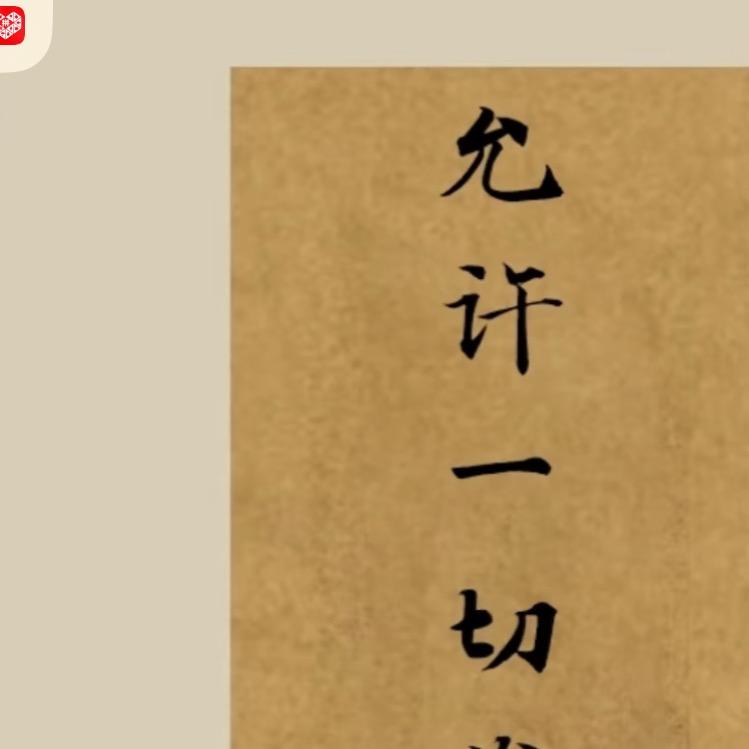 允许一切